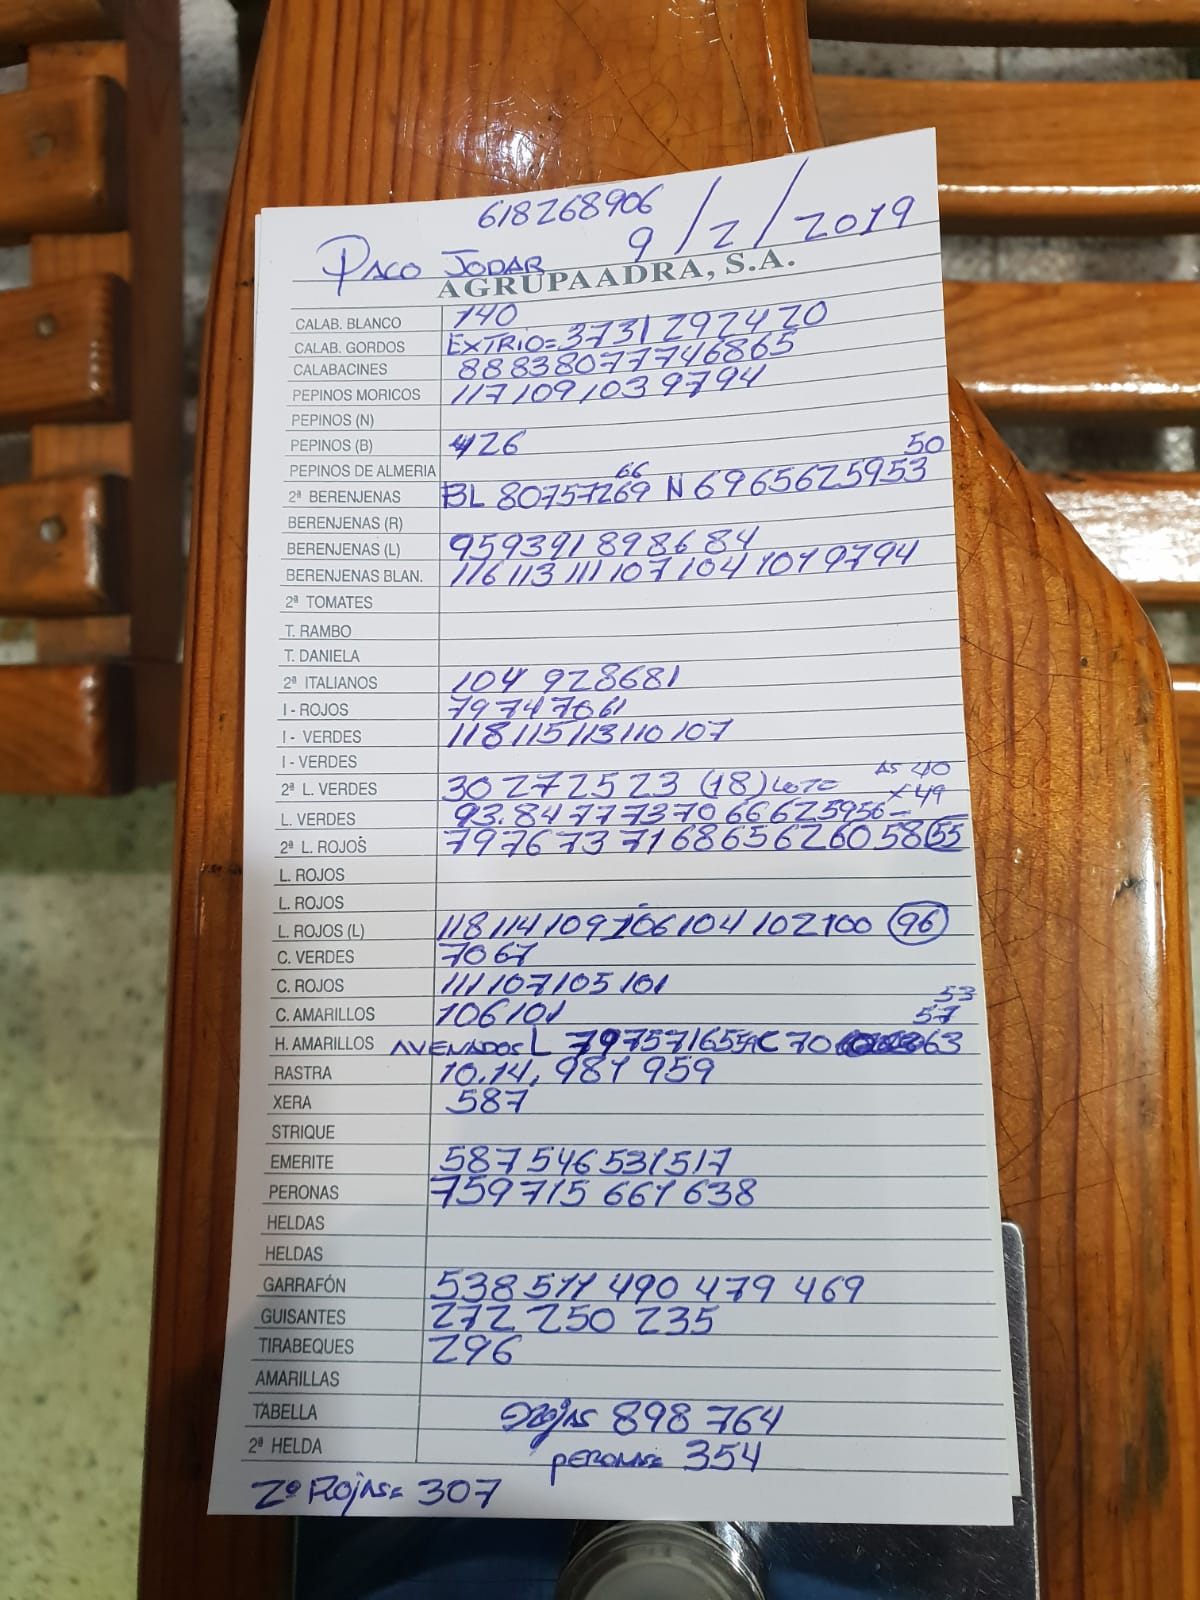 618268906
PACO JODAR 9/2/2019
AGRUPAADRA, S.A.
CALAB. BLANCO 140
CALAB. GORDOS EXTRIO=3731292420
CALABACINES 88838077746865
PEPINOS MORICOS 117109103 9794
PEPINOS (N)
PEPINOS (B) 426
50
PEPINOS DE ALMERIA
66
2ª BERENJENAS BL 80757269 N 6965625953
BERENJENAS (R)
BERENJENAS (L) 959391 898684
BERENJENAS BLAN. 116 113 111 107 104 101 9794
2ª TOMATES
T. RAMBO
T. DANIELA
2ª ITALIANOS 104 928681
I - ROJOS 79747061
I - VERDES 118 115 113 110 107
I - VERDES
AS 40
2ª L. VERDES 30272523 (18) LOTE
x 49
L. VERDES 93.8477737066625956-
2ª L. ROJOS 7976737168656260 58 55
L. ROJOS
L. ROJOS
L. ROJOS (L) 118 114 109 106 104 102 100 96
C. VERDES 7067
C. ROJOS 111 107 105 101
53
C. AMARILLOS 106 101
57
H. AMARILLOS AVENADOS L 79757165 C 70 63
RASTRA 10.14, 981 959
XERA 587
STRIQUE
EMERITE 587 546 531 517
PERONAS 759 715 661 638
HELDAS
HELDAS
GARRAFÓN 538 511 490 479 469
GUISANTES 272 250 235
TIRABEQUES 296
AMARILLAS
TABELLA 898 764
2ª HELDA PERONAS= 354
2ª ROJAS= 307